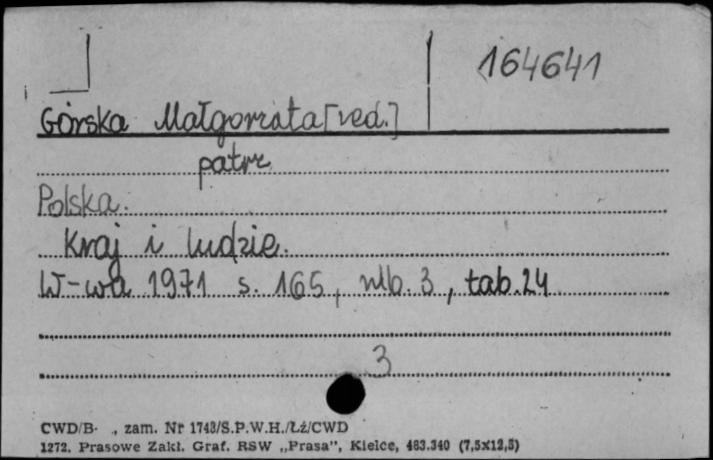 164641
Górska Małgorzata [red.]
patrz
Polska.
Kraj i ludzie.
W-wa 1971 s. 165, nlb. 3, tab. 24
3
CWD/B- ., zam. Nr 1743/S.P.W.H./Łź/CWD
1272. Prasowe Zakł. Graf. RSW „Prasa”, Kielce, 483.340 (7,5x12,5)